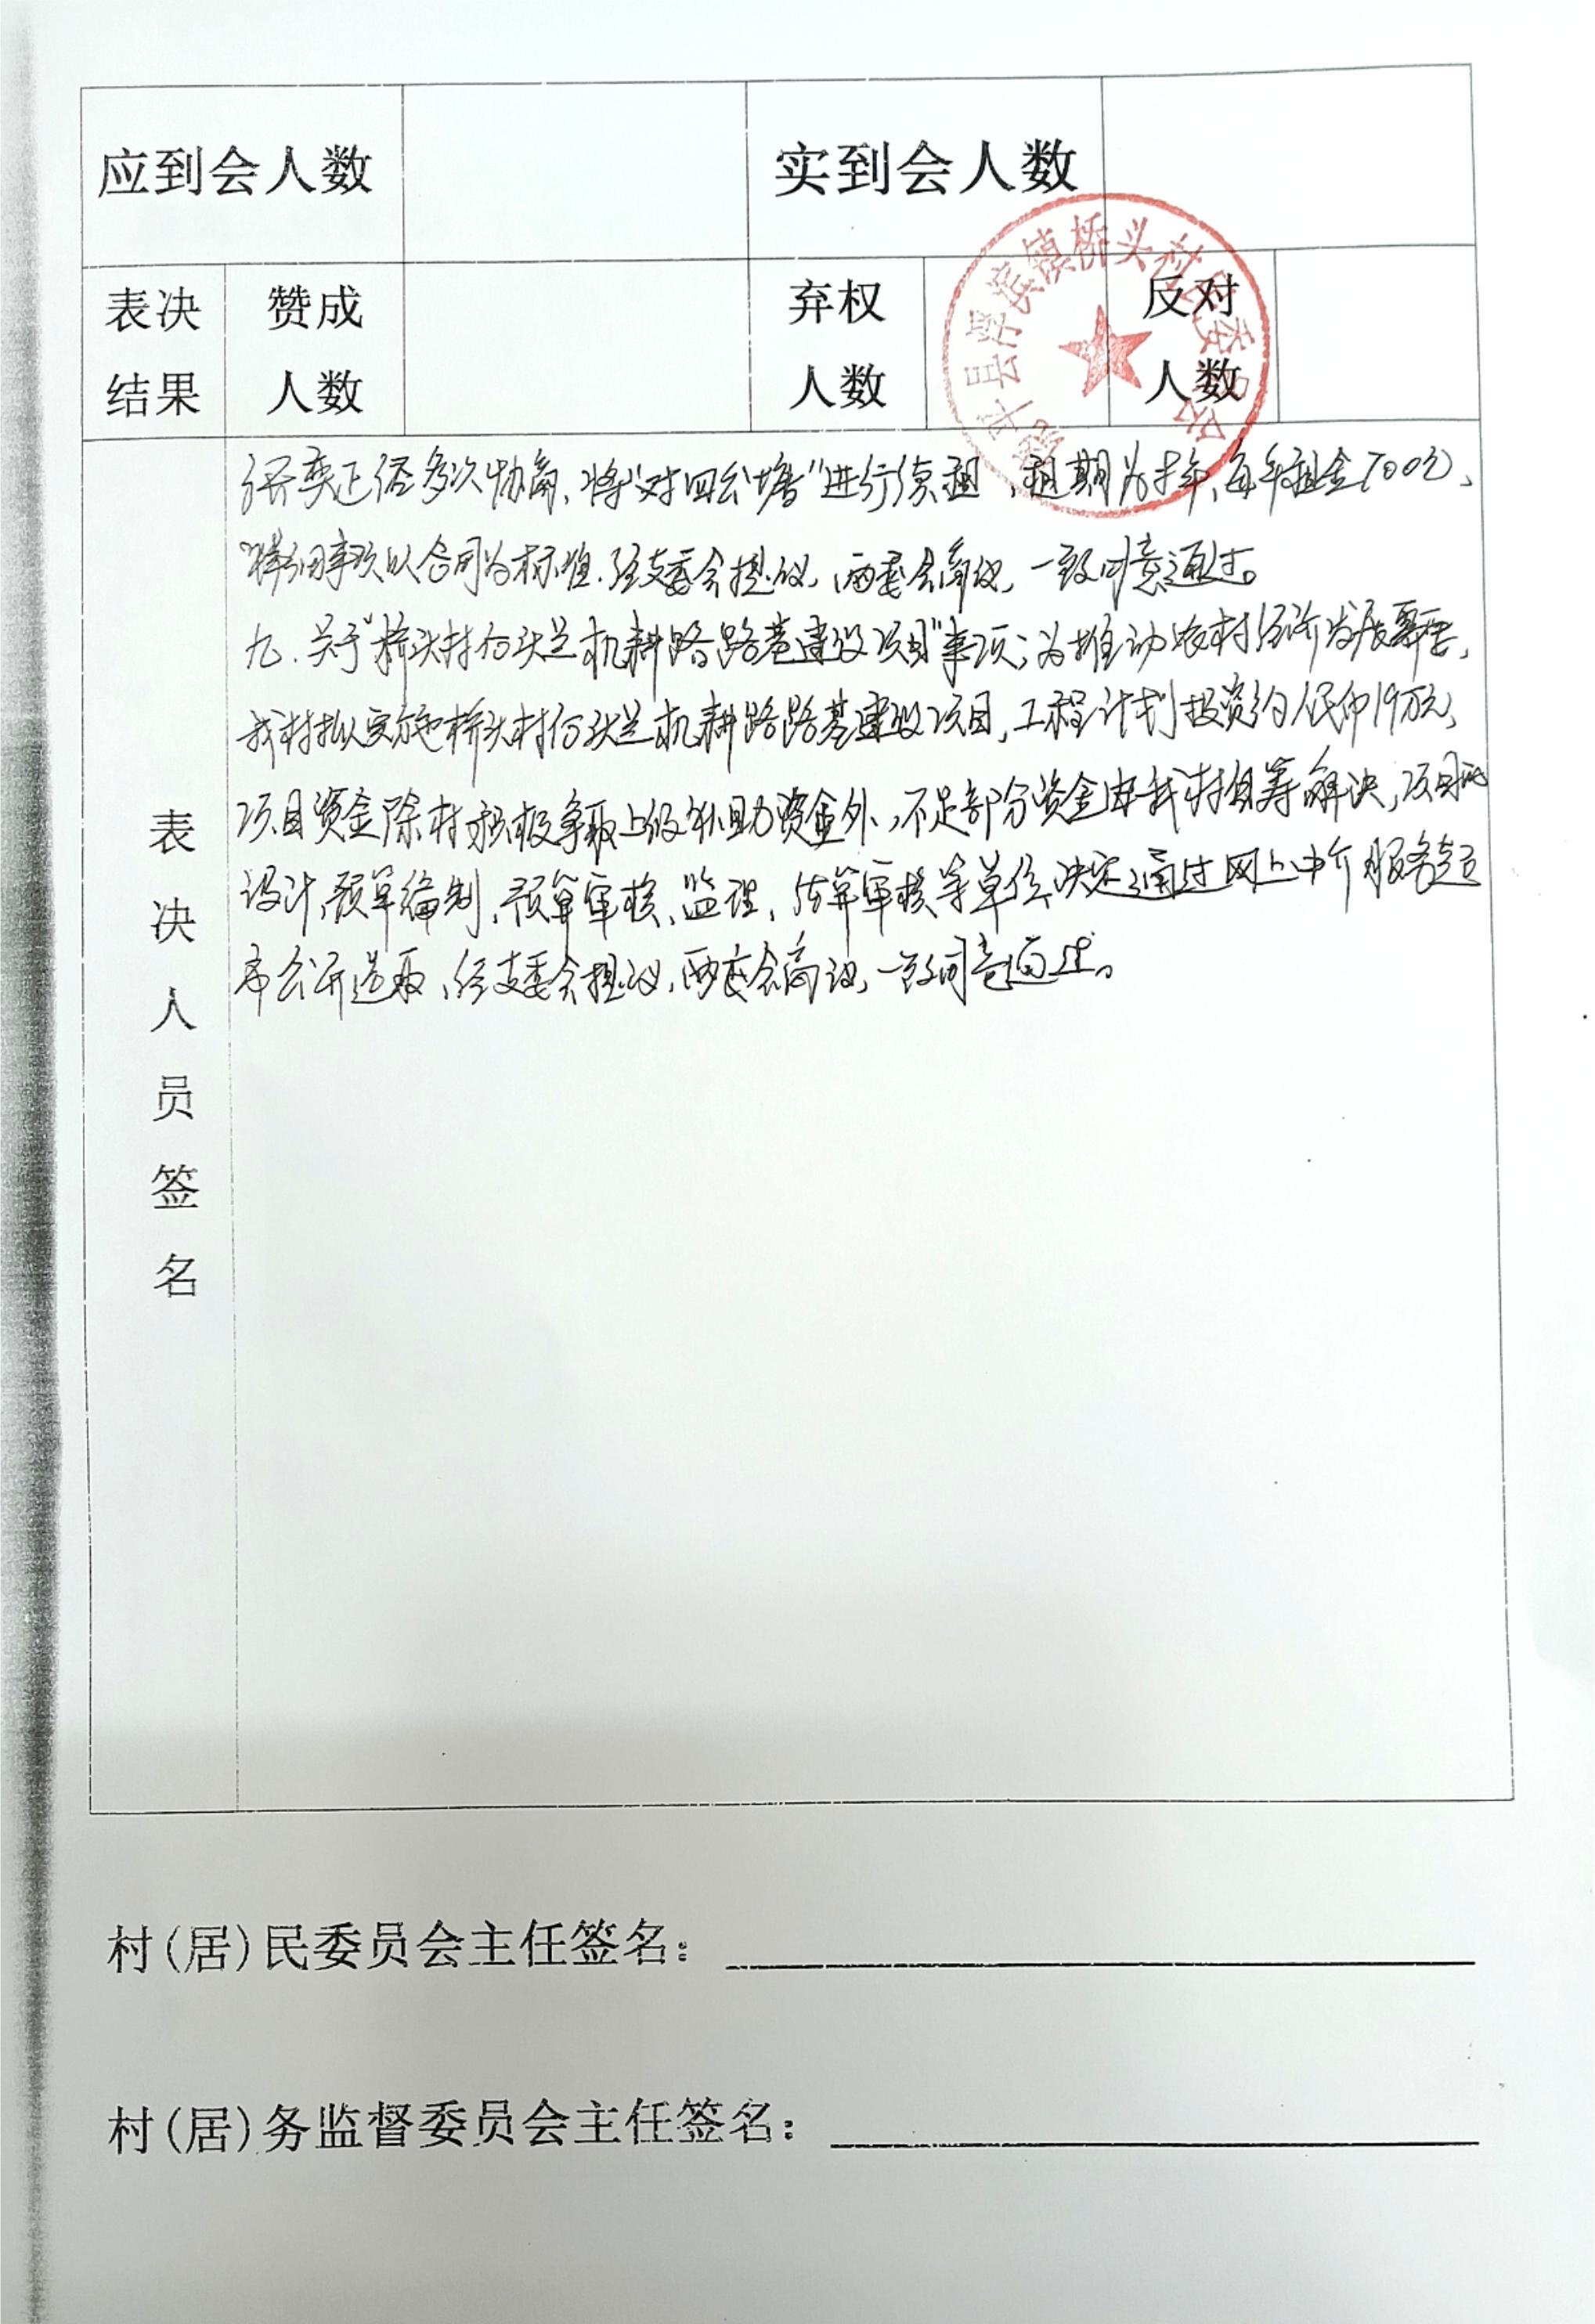 应到会人数 实到会人数
表决结果 赞成人数 弃权人数 反对人数
漳平县 滨镇桥头村民委员会
正经多次协商、将"对四公塘"进行续租、租期为 年、每年租金700元、
详细事项以合同为标准.经支委会提议,两委会商议,一致同意通过。
九.关于"桥头村 机耕路路基建设项目"事项;为推动农村经济发展需要,
我村拟实施桥头村 机耕路路基建设项目,工程计划投资约人民币19万元、
项目资金除村积极争取上级补助资金外,不足部分资金由我村自筹解决,项目的
设计、预算编制、预算审核、监理、结算审核等单位、决定通过网上中介服务超
市公开选取、经支委会提议,两委会商议,一致同意通过。
表决人员签名
村(居)民委员会主任签名:
村(居)务监督委员会主任签名: